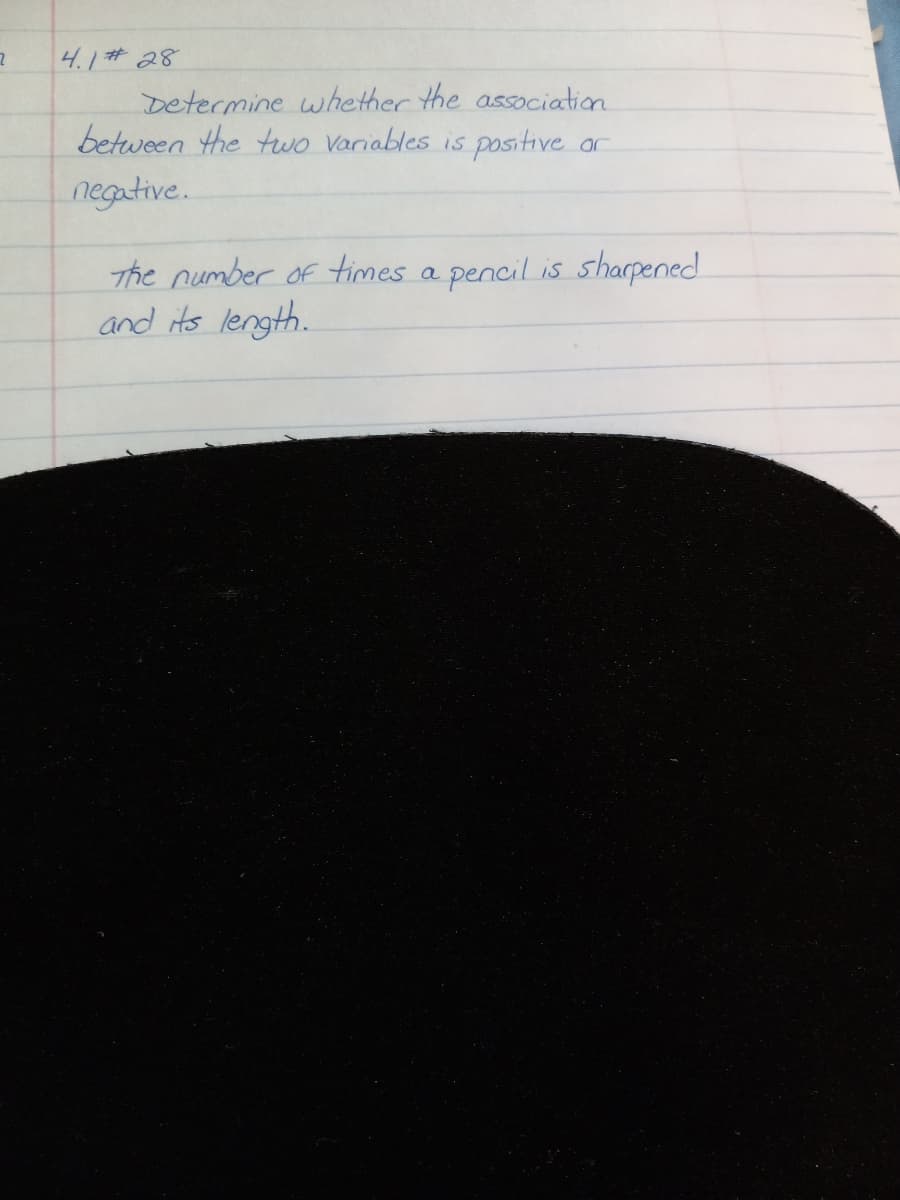 4.1 # 28
Determine whether the association
between the two variables is positive or
negative.
The number of times a pencil is sharpened
and its length.